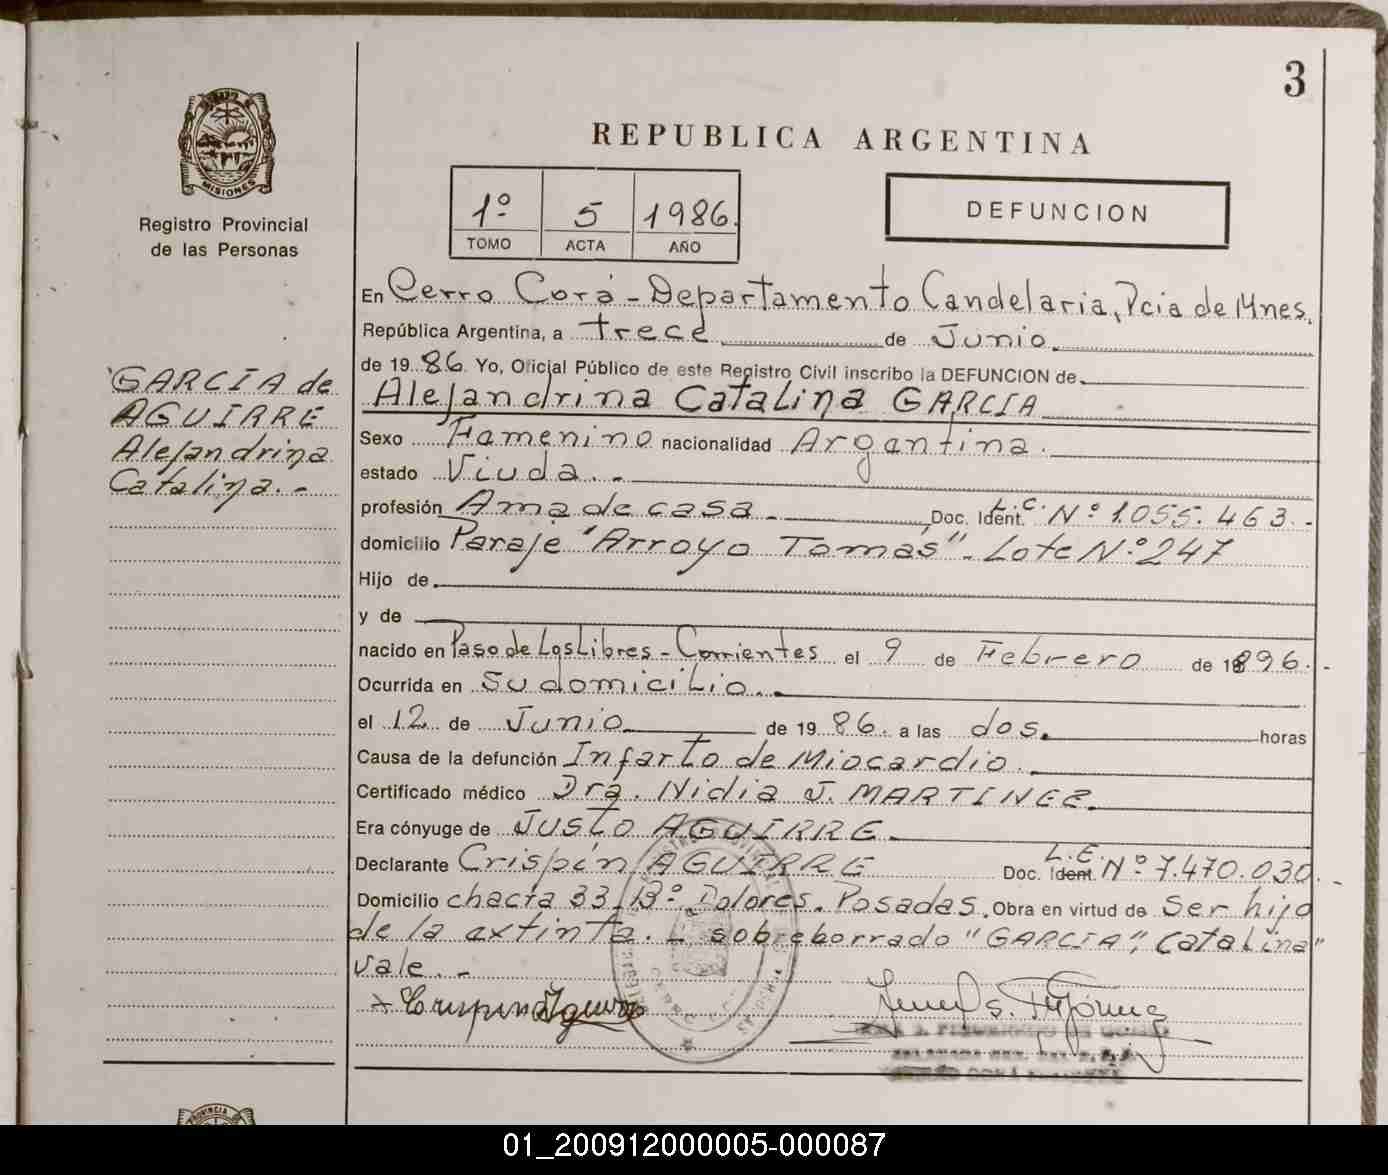 3
MISIONES
Registro Provincial
de las Personas
REPUBLICA ARGENTINA
1º 5 1986.
TOMO ACTA AÑO
DEFUNCION
GARCIA de
AGUIRRE
Alejandrina
Catalina.-
En Cerro Corá - Departamento Candelaria, Pcia de Mnes.
República Argentina, a trece de Junio.
de 19 86. Yo, Oficial Público de este Registro Civil inscribo la DEFUNCION de
Alejandrina Catalina GARCIA
Sexo Femenino nacionalidad Argentina.
estado Viuda..-
profesión Ama de casa.- Doc. Ident. L.C. Nº 1.055.463.-
domicilio Paraje "Arroyo Tomás"- Lote Nº 247
Hijo de
y de
nacido en Paso de Los Libres - Corrientes el 9 de Febrero de 1896.-
Ocurrida en su domicilio.-
el 12 de Junio de 19 86. a las dos. horas
Causa de la defunción Infarto de Miocardio.
Certificado médico Dra. Nidia J. MARTINEZ.
Era cónyuge de Justo AGUIRRE.
Declarante Crispín AGUIRRE Doc. Ident. L.E. Nº 7.470.030.-
Domicilio chacra 33. Bº Dolores. Posadas. Obra en virtud de ser hijo
de la extinta.- sobreborrado "GARCIA", Catalina"
vale.-
Crispin Aguirre
PROVINCIA
01_200912000005-000087